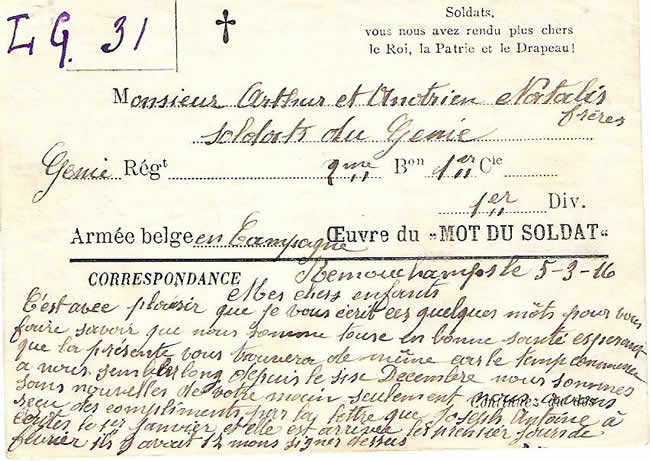 L G. 31
†
Soldats,
vous nous avez rendu plus chers
le Roi, la Patrie et le Drapeau!
Monsieur Arthur et Anotrien Natalis
frères
soldats du Genie
Genie Régt 2me Bon 1er Cie
1er Div.
Armée belge en Campagne Œuvre du "MOT DU SOLDAT"
CORRESPONDANCE Remouchamps le 5-3-16
Mes chers enfants
C'est avec plaisir que je vous écrit ces quelques môts pour vous
faire savoir que nous somme touse en bonne santé esperant
que la présente vous trouvera de même car le temp commence
a nous sembler long depuis le sise Decembre nous sommes
sans nouvelles de votre main seulement nous avons
reçu des compliments par la lettre que Joseph Antoine à
écrites le 1er Janvier et elle est arrivée les premier jours de
février ils y avait 12 mons signer dessus